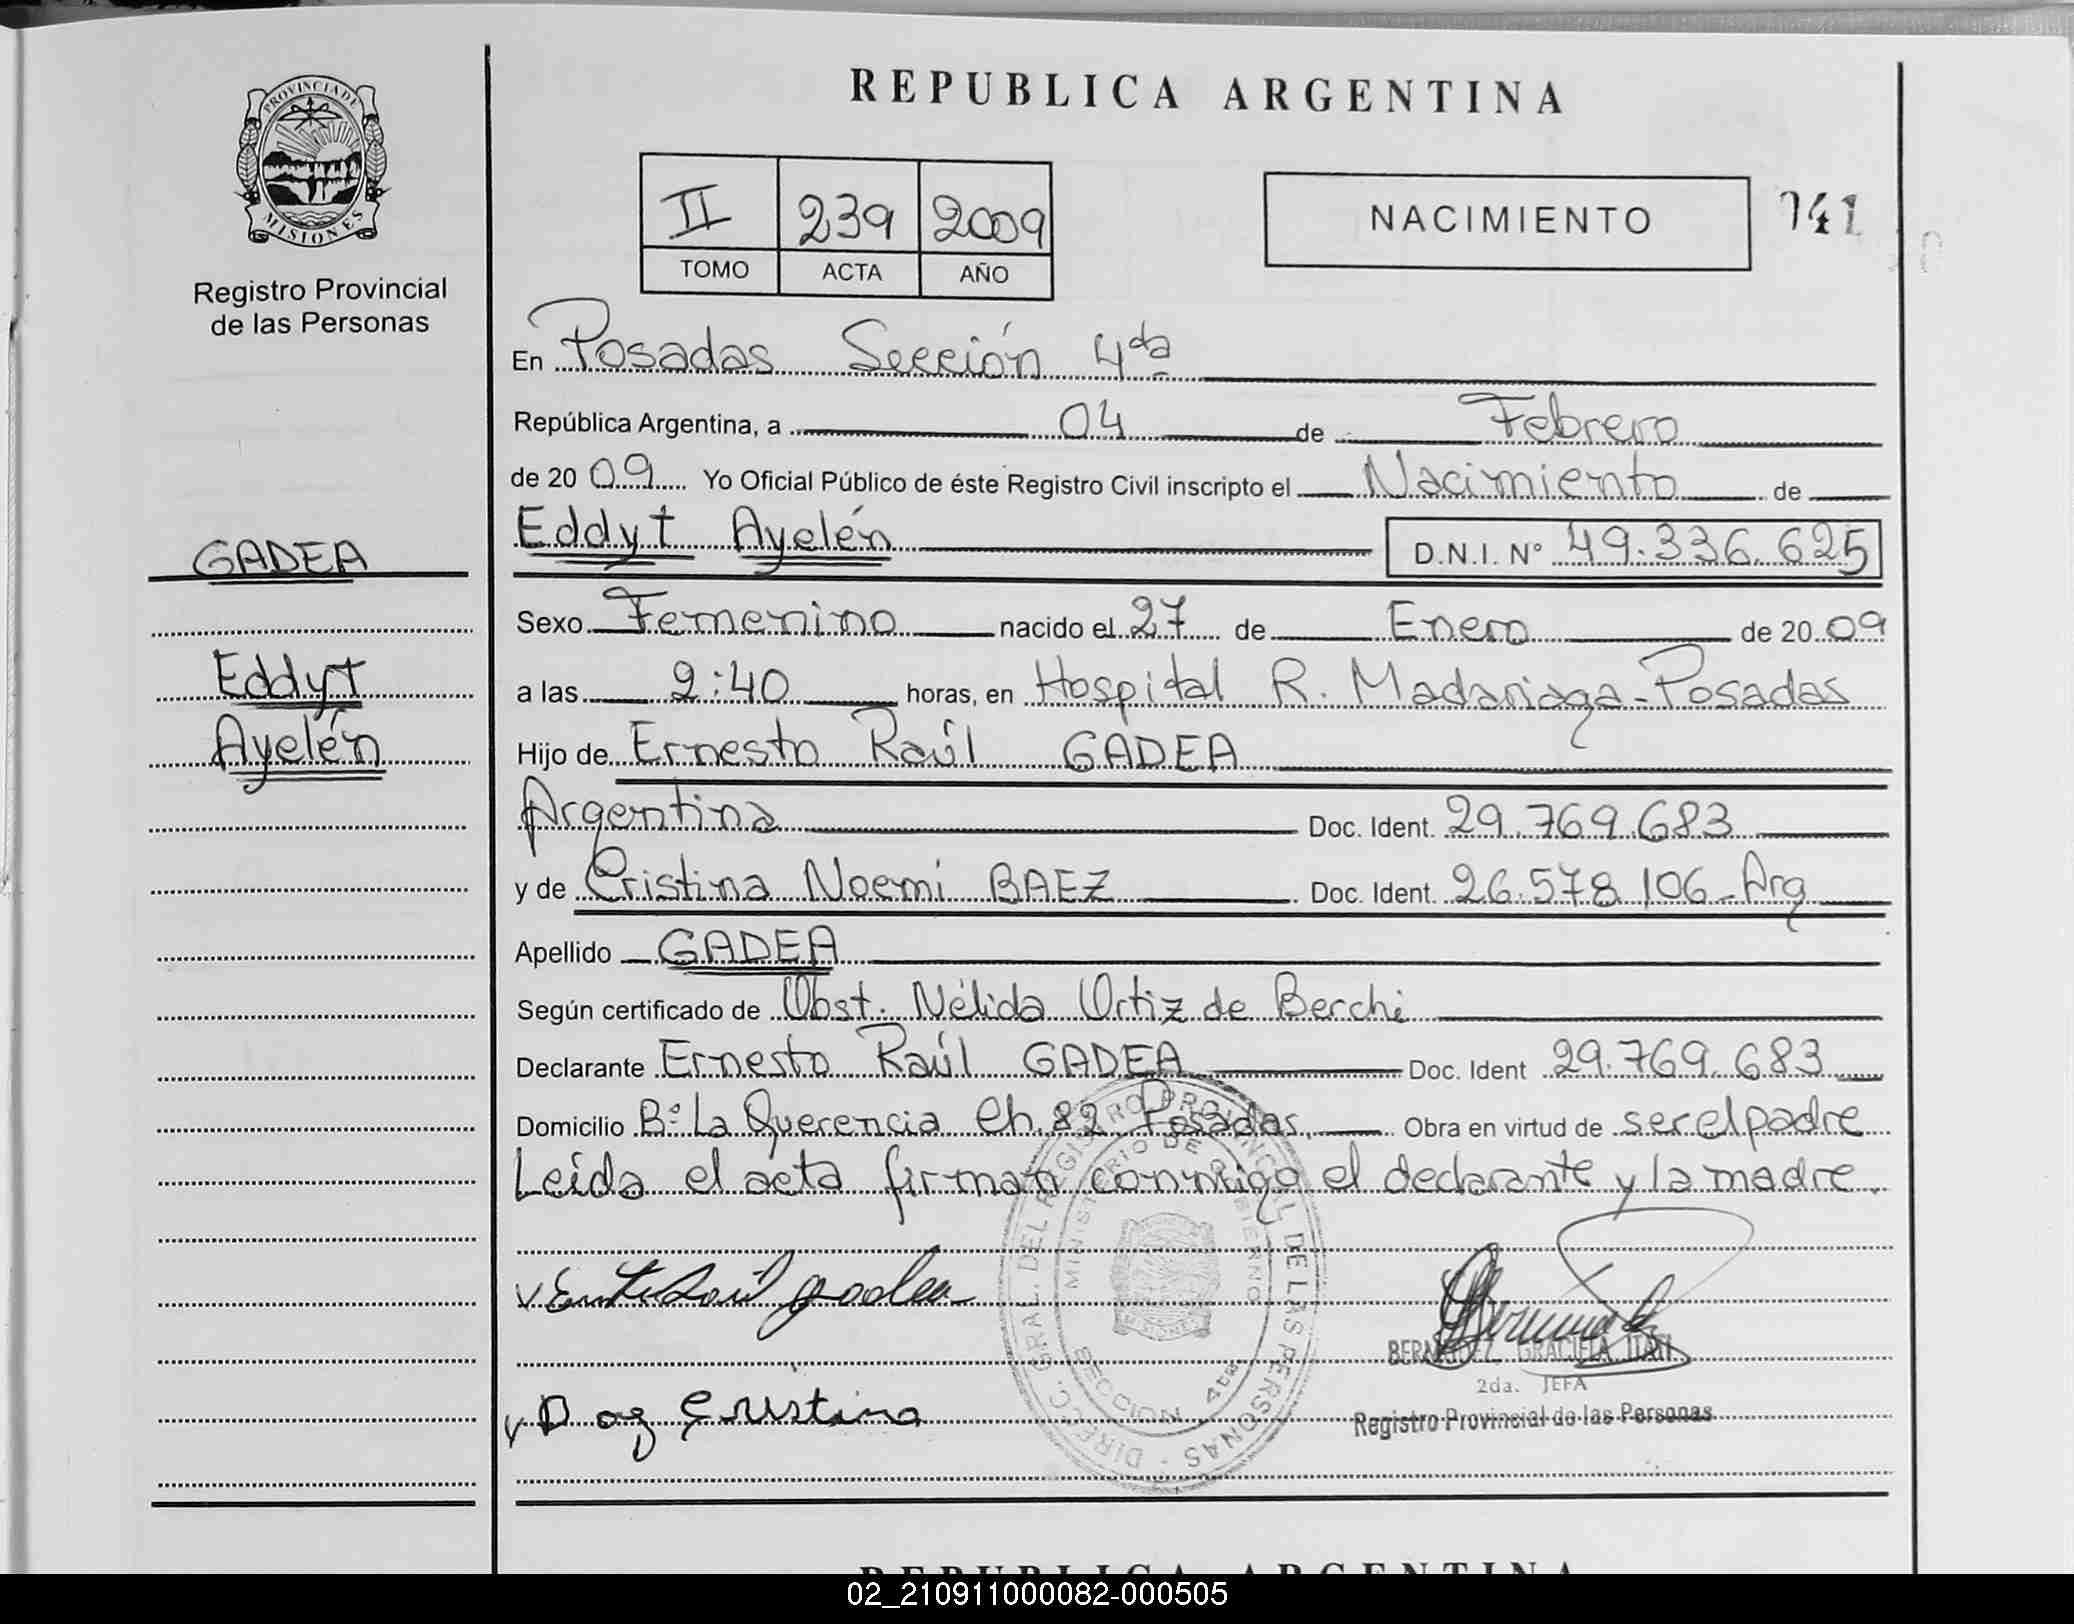 REPUBLICA ARGENTINA
PROVINCIA DE
MISIONES
Registro Provincial
de las Personas
II 239 2009
TOMO ACTA AÑO
NACIMIENTO
141
En Posadas Sección 4ta
República Argentina, a 04 de Febrero
de 2009 Yo Oficial Público de éste Registro Civil inscripto el Nacimiento de
Eddyt Ayelén D.N.I. Nº 49.336.625
GADEA
Sexo Femenino nacido el 27 de Enero de 2009
Eddyt
a las 2:40 horas, en Hospital R. Madariaga-Posadas
Ayelén
Hijo de Ernesto Raúl GADEA
Argentina Doc. Ident. 29.769.683
y de Cristina Noemi BAEZ Doc. Ident. 26.578.106-Arg
Apellido GADEA
Según certificado de Obst. Nélida Ortiz de Berchi
Declarante Ernesto Raúl GADEA Doc. Ident 29.769.683
Domicilio Bº La Querencia Ch. 82 Posadas. Obra en virtud de ser el padre
Leída el acta firman conmigo el declarante y la madre.
DIRECC. GRAL. DEL REGISTRO PROVINCIAL DE LAS PERSONAS
MINISTERIO DE GOBIERNO
MISIONES
SECCION 4ta.
Raúl gadea
Cristina
GRACIELA ITATI
2da. JEFA
Registro Provincial de las Personas
REPUBLICA ARGENTINA
02_210911000082-000505